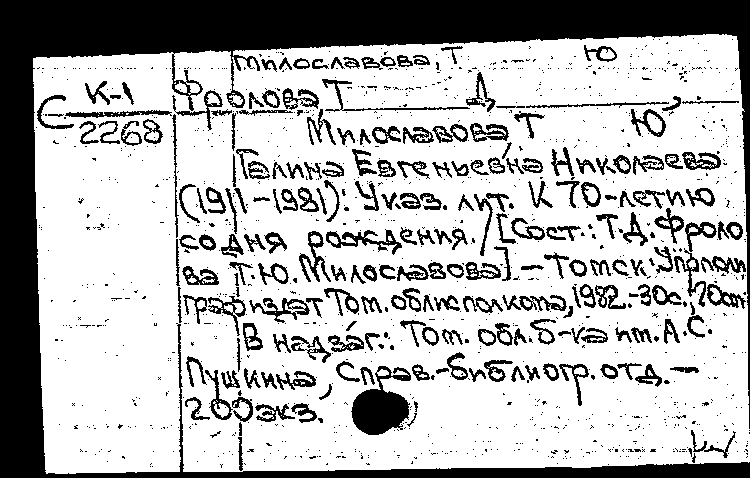 Милославова, Т Ю
К-1 Фролова, Т Д
С 2268 Милославова Т Ю
Галина Евгеньевна Николаева
(1911-1981): Указ. лит. К 70-летию
со дня рождения. / [Сост.: Т.Д. Фроло
ва Т.Ю. Милославова] - Томск: Упрполи
графиздат Том. облисполкома, 1982.-30с.; 20см
В надзаг.: Том. обл. б-ка им. А.С.
Пушкина, Справ.-библиогр. отд. -
200экз.